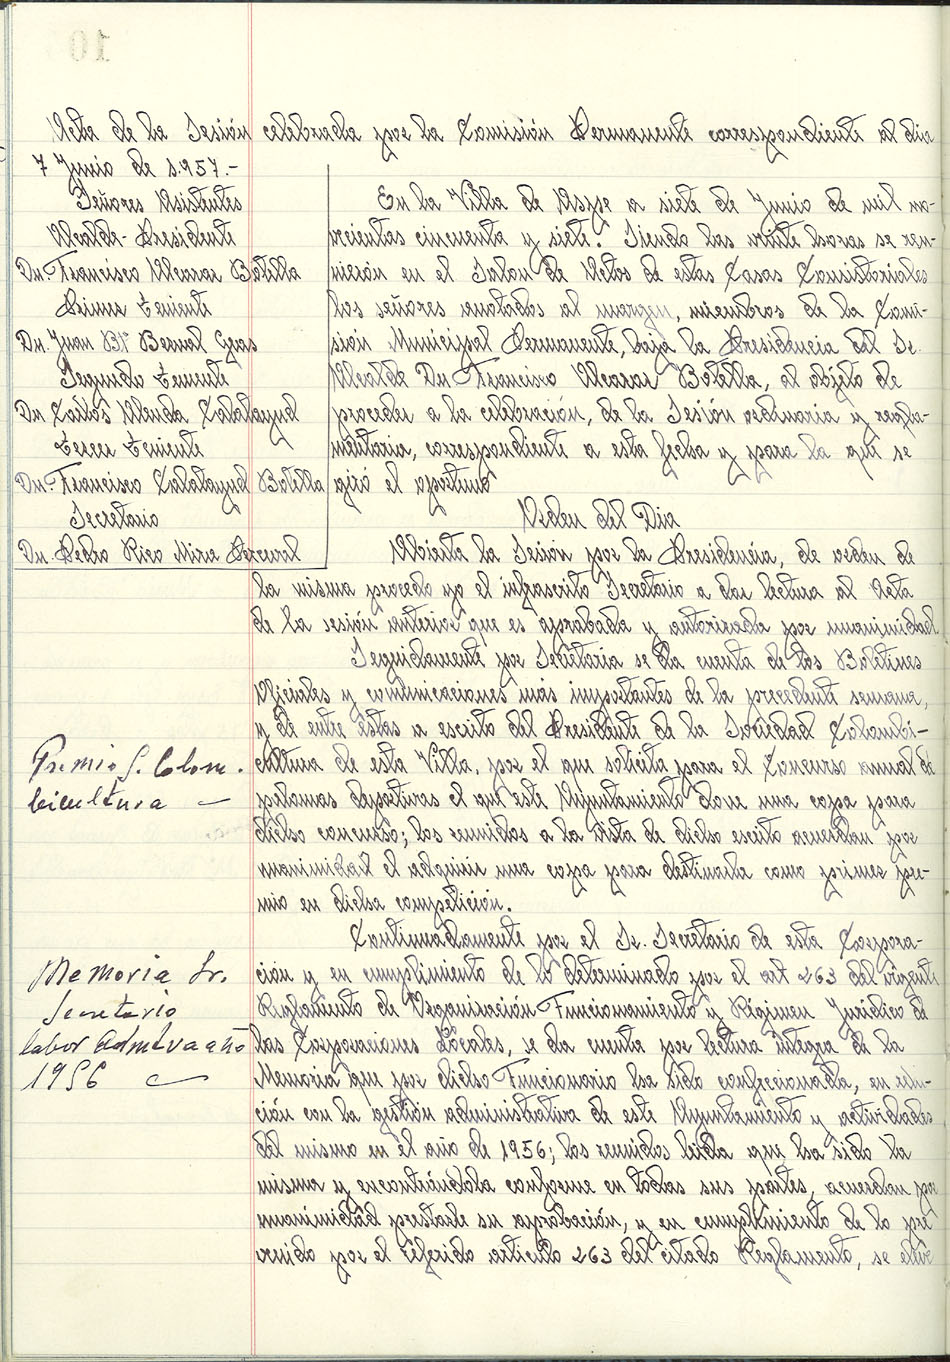 Acta de la Sesión celebrada por la Comisión Permanente correspondiente al dia
7 Junio de 1.957.-
Señores Asistentes
Alcalde-Presidente
Dn. Francisco Alcaraz Botella
Primer Teniente
Dn. Juan Btª Bernal Cyas
Segundo Teniente
Dn. Carlos Alenda Calatayud
Tercer Teniente
Dn. Francisco Calatayud Botella
Secretario
Dn. Pedro Rico Mira Perceval
En la Villa de Aspe a siete de Junio de mil no-
vecientos cincuenta y siete. Siendo las veinte horas se reu-
nieron en el Salon de Actos de estas Casas Consistoriales
los señores anotados al margen, miembros de la Comi-
sión Municipal Permanente, bajo la Presidencia del Sr.
Alcalde Dn. Francisco Alcaraz Botella, al objeto de
proceder a la celebración, de la Sesión ordinaria y regla-
mentaria, correspondiente a esta fecha y para la que se
giró el oportuno
Orden del Dia
Abierta la Sesión por la Presidencia, de orden de
la misma procedo yo el infrascrito Secretario a dar lectura al Acta
de la sesión anterior que es aprobada y autorizada por unanimidad.
Seguidamente por Secretaria se da cuenta de los Boletines
Oficiales y comunicaciones más importantes de la precedente semana,
y de entre éstas a escrito del Presidente de la Sociedad Colombi-
cultura de esta Villa, por el que solicita para el Concurso anual de
palomas deportivas el que este Ayuntamiento done una copa para
dicho concurso; los reunidos a la vista de dicho escrito acuerdan por
unanimidad el adquirir una copa para destinarla como primer pre-
mio en dicha competición.
Premio S. Colom.
bicultura
Continuadamente por el Sr. Secretario de esta Corpora-
ción y en cumplimiento de lo determinado por el art 263 del vigente
Reglamento de Organización Funcionamiento y Régimen Jurídico de
las Corporaciones Locales, se da cuenta por lectura integra de la
Memoria que por dicho Funcionario ha sido confeccionada, en rela-
ción con la gestión administrativa de este Ayuntamiento y actividades
del mismo en el año de 1956; los reunidos leida que ha sido la
misma y encontrándola conforme en todas sus partes, acuerdan por
unanimidad prestarle su aprobación, y en cumplimiento de lo pre
venido por el referido articulo 263 del citado Reglamento, se eleve
Memoria Sr.
Secretario
labor Admtva año
1956